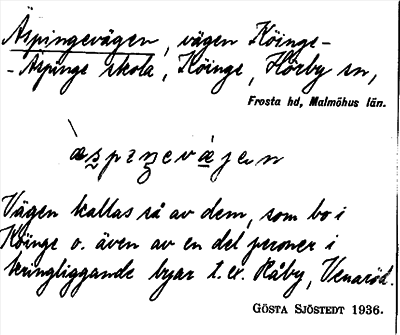 Äspingevägen, vägen Köinge-
-Äspinge skola, Köinge, Hörby sn,
Frosta hd, Malmöhus län.
`æspıŋevæ̀jen
Vägen kallas så av dem, som bo i
Köinge o. även av en del personer i
kringliggande byar t. ex. Råby, Venaröd.
GÖSTA SJÖSTEDT 1936.